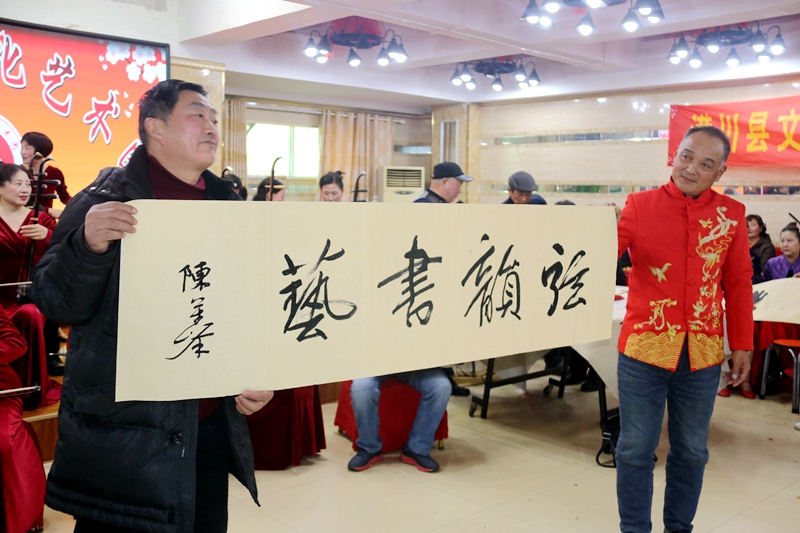 化艺术
潢川县文
弦韻書藝
陳